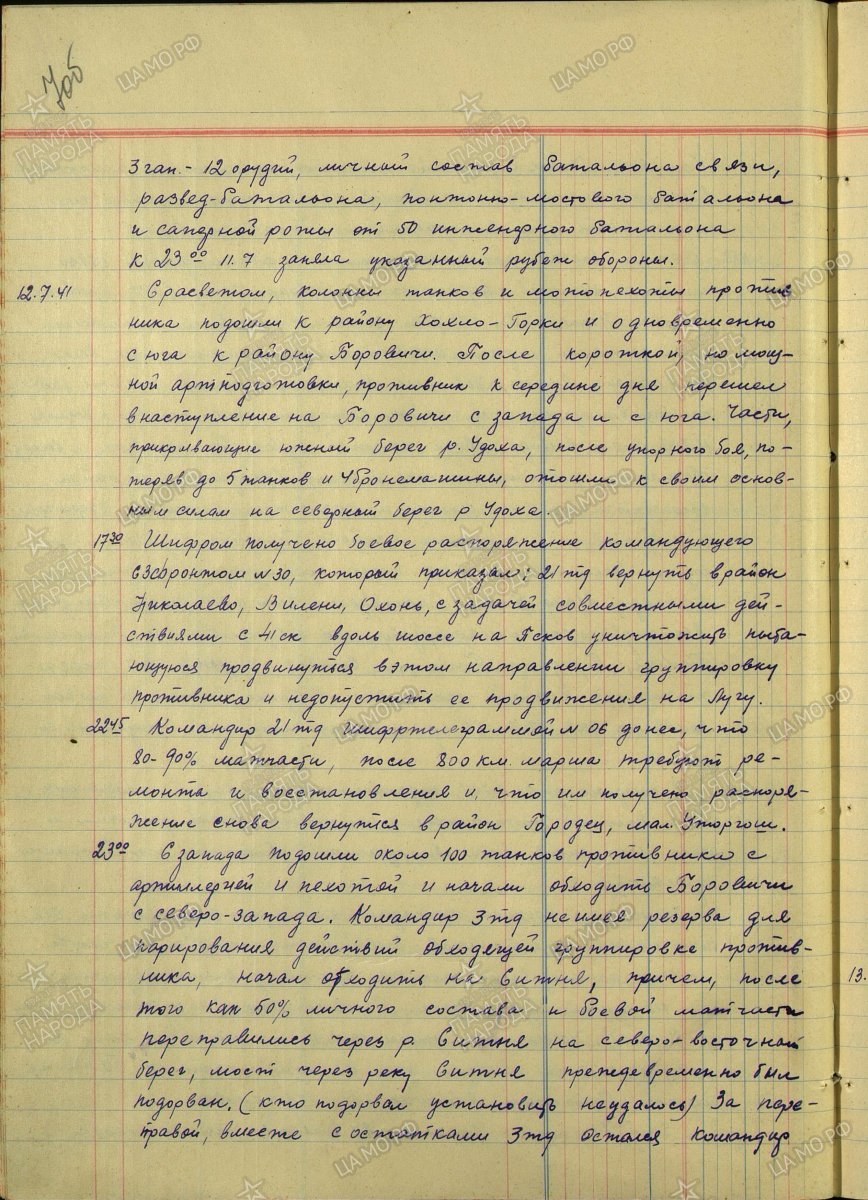 70б
3 гап. - 12 орудий, личный состав батальона связи,
развед-батальона, понтонно-мостового батальона
и саперной роты от 50 инженерного батальона
к 23⁰⁰ 11.7 заняла указанный рубеж обороны.
12.7.41 С расветом, колонны танков и мотопехоты против
ника подошли к району Хохло-Горки и одновременно
с юга к району Боровичи. После короткой, но мощ-
ной артподготовки, противник к середине дня перешел
в наступление на Боровичи с запада и с юга. Части,
прикрывающие южный берег р. Удоха, после упорного боя, по-
теряв до 5 танков и 4 бронемашины, отошли к своим основ-
ным силам на северный берег р Удоха.
17³⁰ Шифром получено боевое распоряжение командующего
СЗфронтом №30, который приказал: 21 тд вернуть в район
Николаево, Вилени, Охонь, с задачей совместными дей-
ствиями с 41 ск вдоль шоссе на Псков уничтожить пыта-
ющуюся продвинуться в этом направлении группировку
противника и недопустить ее продвижения на Лугу.
22⁴⁵ Командир 21 тд шифртелеграммой № 06 донес, что
80-90% матчасти, после 800 км. марша требуют ре-
монта и восстановления и, что им получено распоря-
жение снова вернутся в район Городец, мал. Уторгош.
23⁰⁰ С запада подошли около 100 танков противника с
артиллерией и пехотой и начали обходить Боровичи
с северо-запада. Командир 3 тд не имея резерва для
парирования действий обходящей группировке против-
ника, начал отходить на Ситня, причем, после
того как 50% личного состава и боевой матчасти
переправились через р. Ситня на северо-восточный
берег, мост через реку Ситня преждевременно был
подорван. (кто подорвал установить неудалось) За пере-
правой, вместе с остатками 3 тд остался командир
13.
ПАМЯТЬ НАРОДА
ЦАМО.РФ